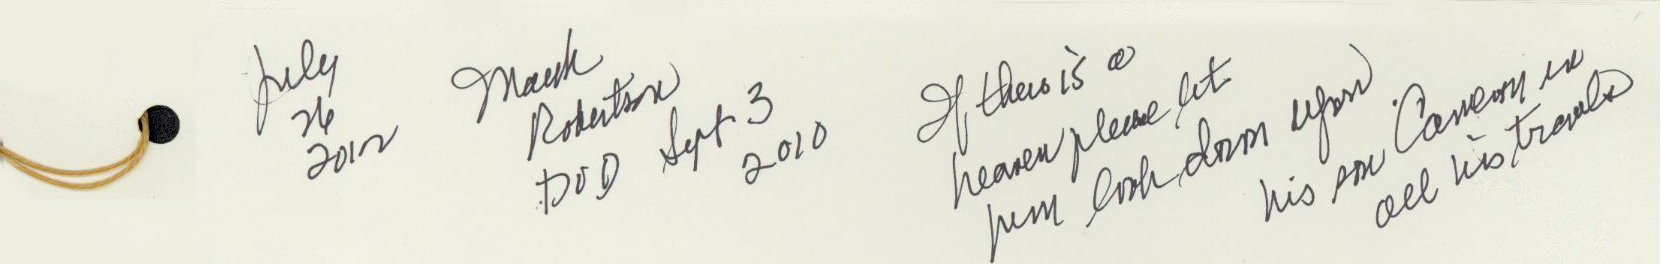 July
26
2012
Mark
Robertson
DOD Sept 3
2010
If there is a
heaven please let
him look down upon
his son Cameron in
all his travels